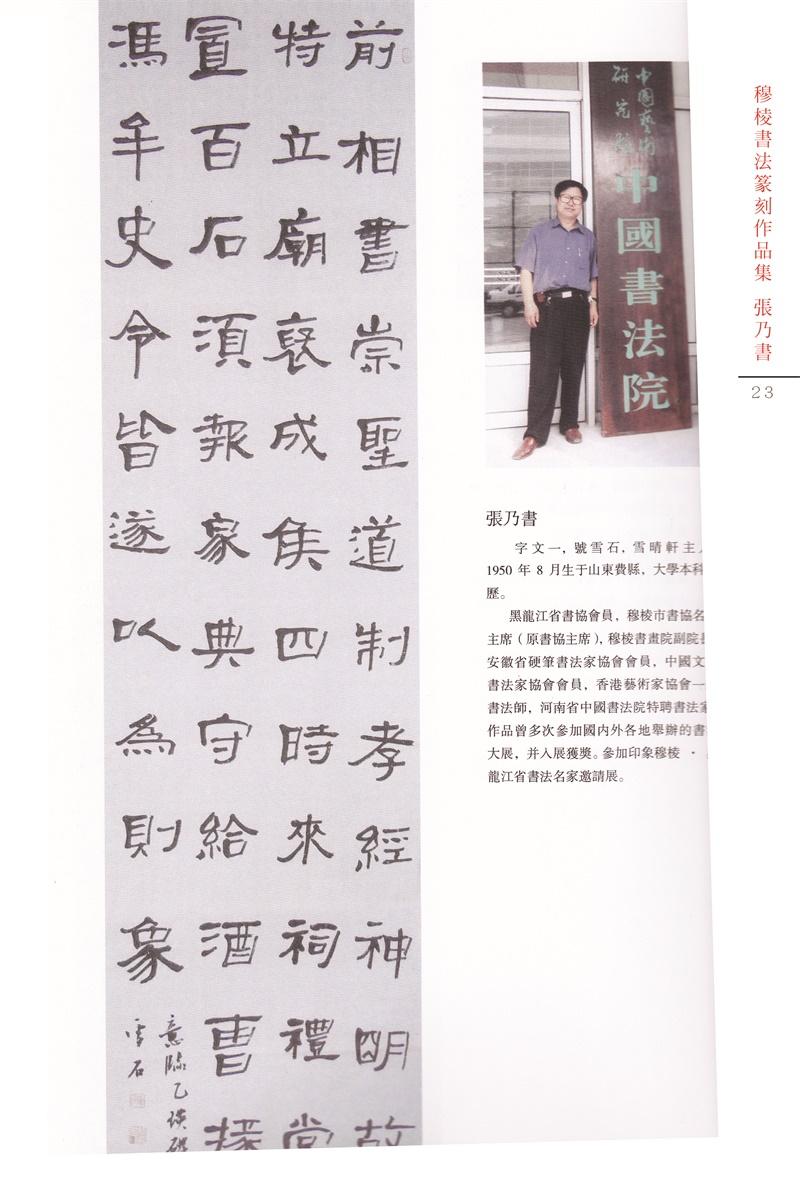 前相書崇聖道制孝經神明故
特立廟褒成侯四時來祠禮堂
置百石須報家典守給酒曹掾
馮牟史令皆遂以為則象
意臨乙瑛碑
雪石
中國藝術
研究院
中國書法院
穆棱書法篆刻作品集 張乃書
23
張乃書
字文一，號雪石，雪晴軒主
1950 年 8 月生于山東費縣，大學本科
歷。
黑龍江省書協會員，穆棱市書協名
主席（原書協主席），穆棱書畫院副院長
安徽省硬筆書法家協會會員，中國文
書法家協會會員，香港藝術家協會一
書法師，河南省中國書法院特聘書法家
作品曾多次參加國内外各地舉辦的書
大展，并入展獲獎。參加印象穆棱 ·
龍江省書法名家邀請展。